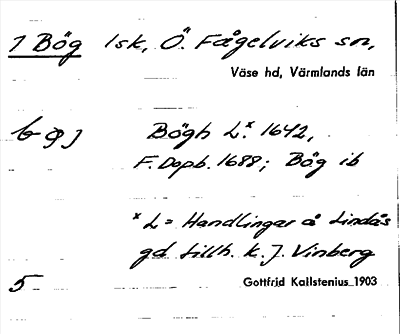 1 Bög Isk, Ö. Fågelviks sn,
Väse hd, Värmlands län
Bögh L.ˣ 1642,
F. Dopb. 1688; Bög ib
ˣ L = Handlingar å Lindås
gd tillh. k. J. Vinberg
5 Gottfrid Kallstenius 1903